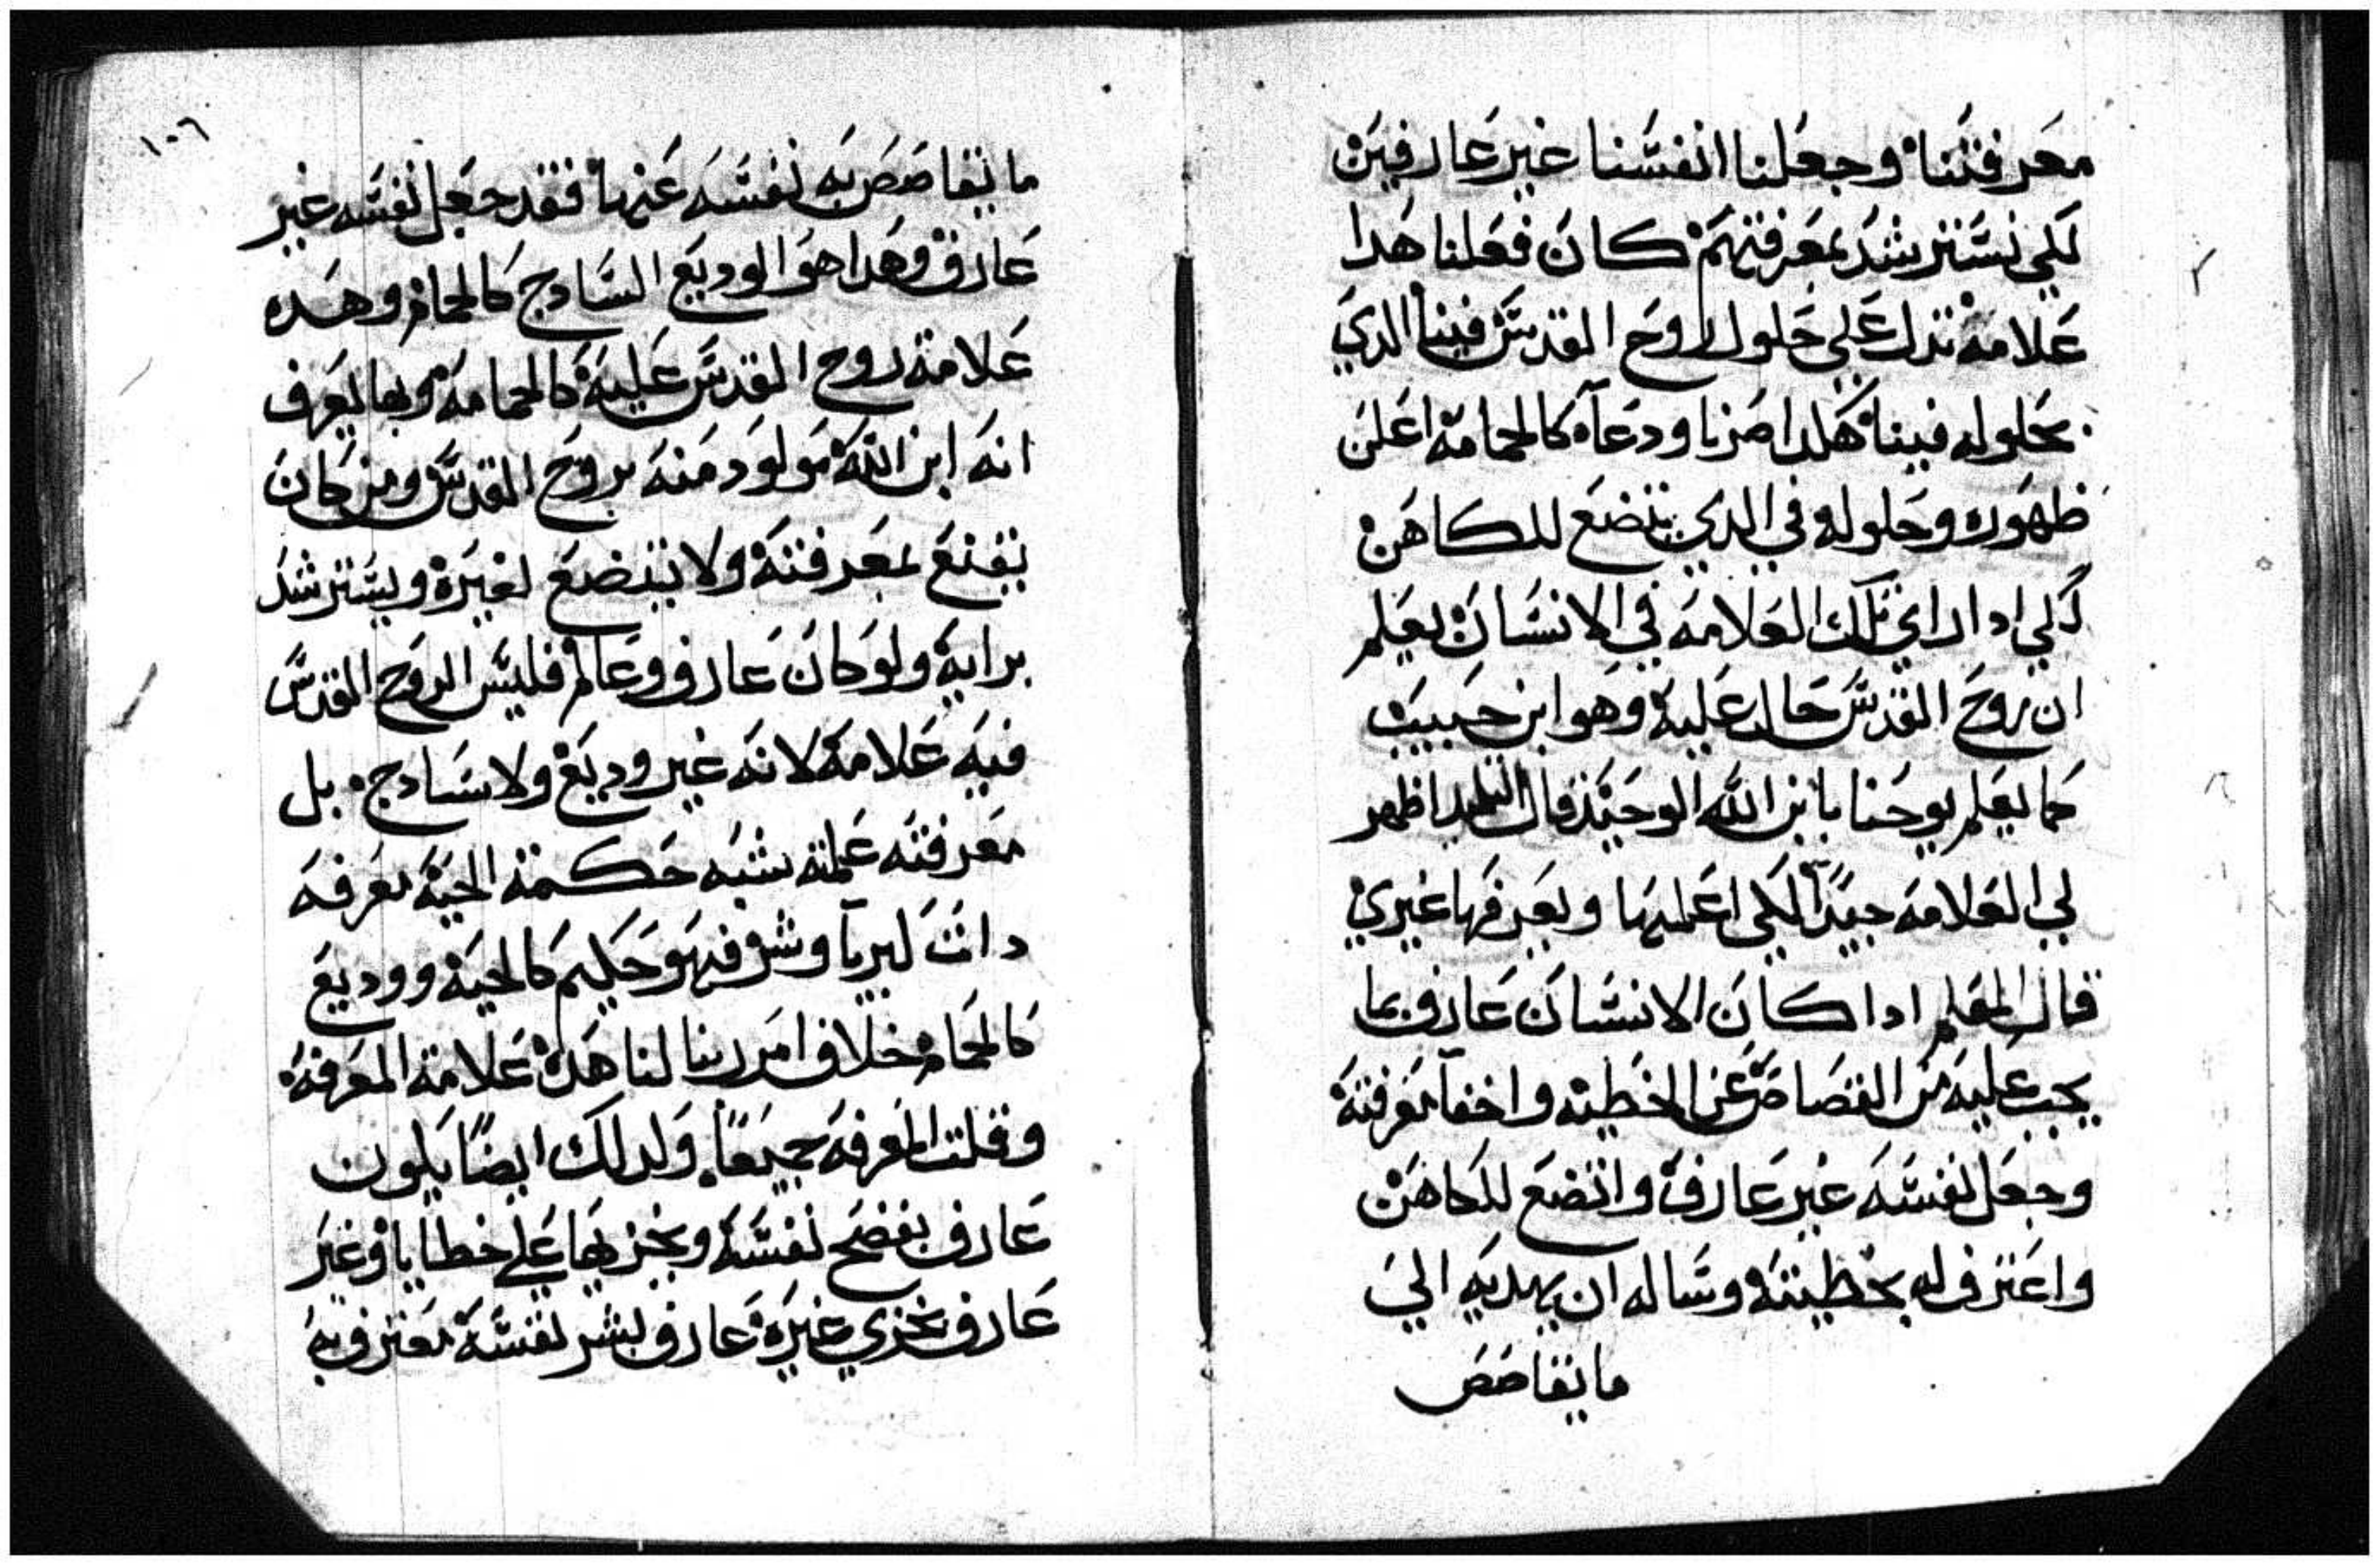 معرفتنا وجعلنا انفسنا غير عارفين
لكي نسترشد بمعرفتهم كان فعلنا هدا
علامة تدل علي حلول روح القدس فينا الدي
بحلوله فينا هكدا صرنا ودعآء كالحمامة اعلن
ظهوره وحلوله في الدي يتضع للكاهن
لكي ادا راي تلك العلامه في الانسان يعلم
ان روح القدس حال عليه وهو ابن حبيب
كما يعلم يوحنا بابن الله الوحيد قال التلميد اظهر
لي العلامه جيدًا لكي اعلمها ويعرفها غيري
قال المعلم ادا كان الانسان عارف بما
يجب عليه من القصاص عن الخطيه واخفا معرفته
وجعل نفسه غير عارف واتضع للكاهن
واعترف له بخطيته وساله ان يهديه الي
ما يتقاصص
١٠٦
ما يتقاصص به نفسه عنها فقد جعل نفسه غير
عارف وهدا هو الوديع السادج كالحمام وهده
علامة روح القدس عليه كالحمامه وبها يعرف
انه ابن الله مولود منه بروح القدس ومن كان
يقنع بمعرفته ولا يتضع لغيره ويسترشد
برايه ولو كان عارف وعالم فليس الروح القدس
فيه علامه لانه غير وديع ولا سادج بل
معرفته عملته شبه حكمة الحيه معرفه
دات كبريآ وشر فهو حكيم كالحيه ووديع
كالحمام خلاف امر ربنا لنا هده علامة المعرفه
وقلت المعرفه جميعًا ولدلك ايضًا يكون
عارف يفضح نفسه ويخزيها علي خطايا وغير
عارف يخزي غيره عارف بشر نفسه معترف به